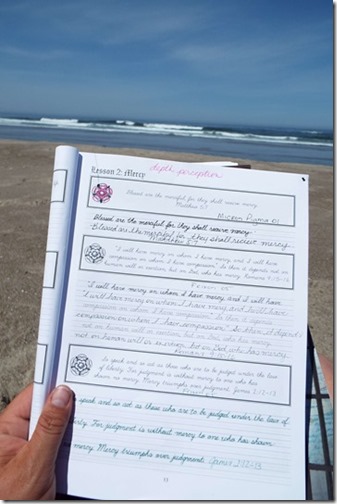 depth perception
Lesson 2: Mercy
Blessed are the merciful for they shall receive mercy.
Matthew 5:7
Micron Pigma 01
Blessed are the merciful for they shall receive mercy.
Blessed are the merciful for they shall receive mercy.
Matthew 5:7
"I will have mercy on whom I have mercy, and I will have
compassion on whom I have compassion." So then it depends not on
human will or exertion, but on God, who has mercy. Romans 9:15-16
"I will have mercy on whom I have mercy, and I will have
"I will have mercy on whom I have mercy, and I will have
compassion on whom I have compassion." So then it depends
compassion on whom I have compassion." So then it depends
not on human will or exertion, but on God, who has mercy.
not on human will or exertion, but on God, who has mercy.
Romans 9:15-16
So speak and so act as those who are to be judged under the law
of liberty. For judgment is without mercy to one who has
shown no mercy. Mercy triumphs over judgment. James 2:12-13
So speak and so act as those who are to be judged under the law of
liberty. For judgment is without mercy to one who has shown
mercy. Mercy triumphs over judgment. James 2:12-13